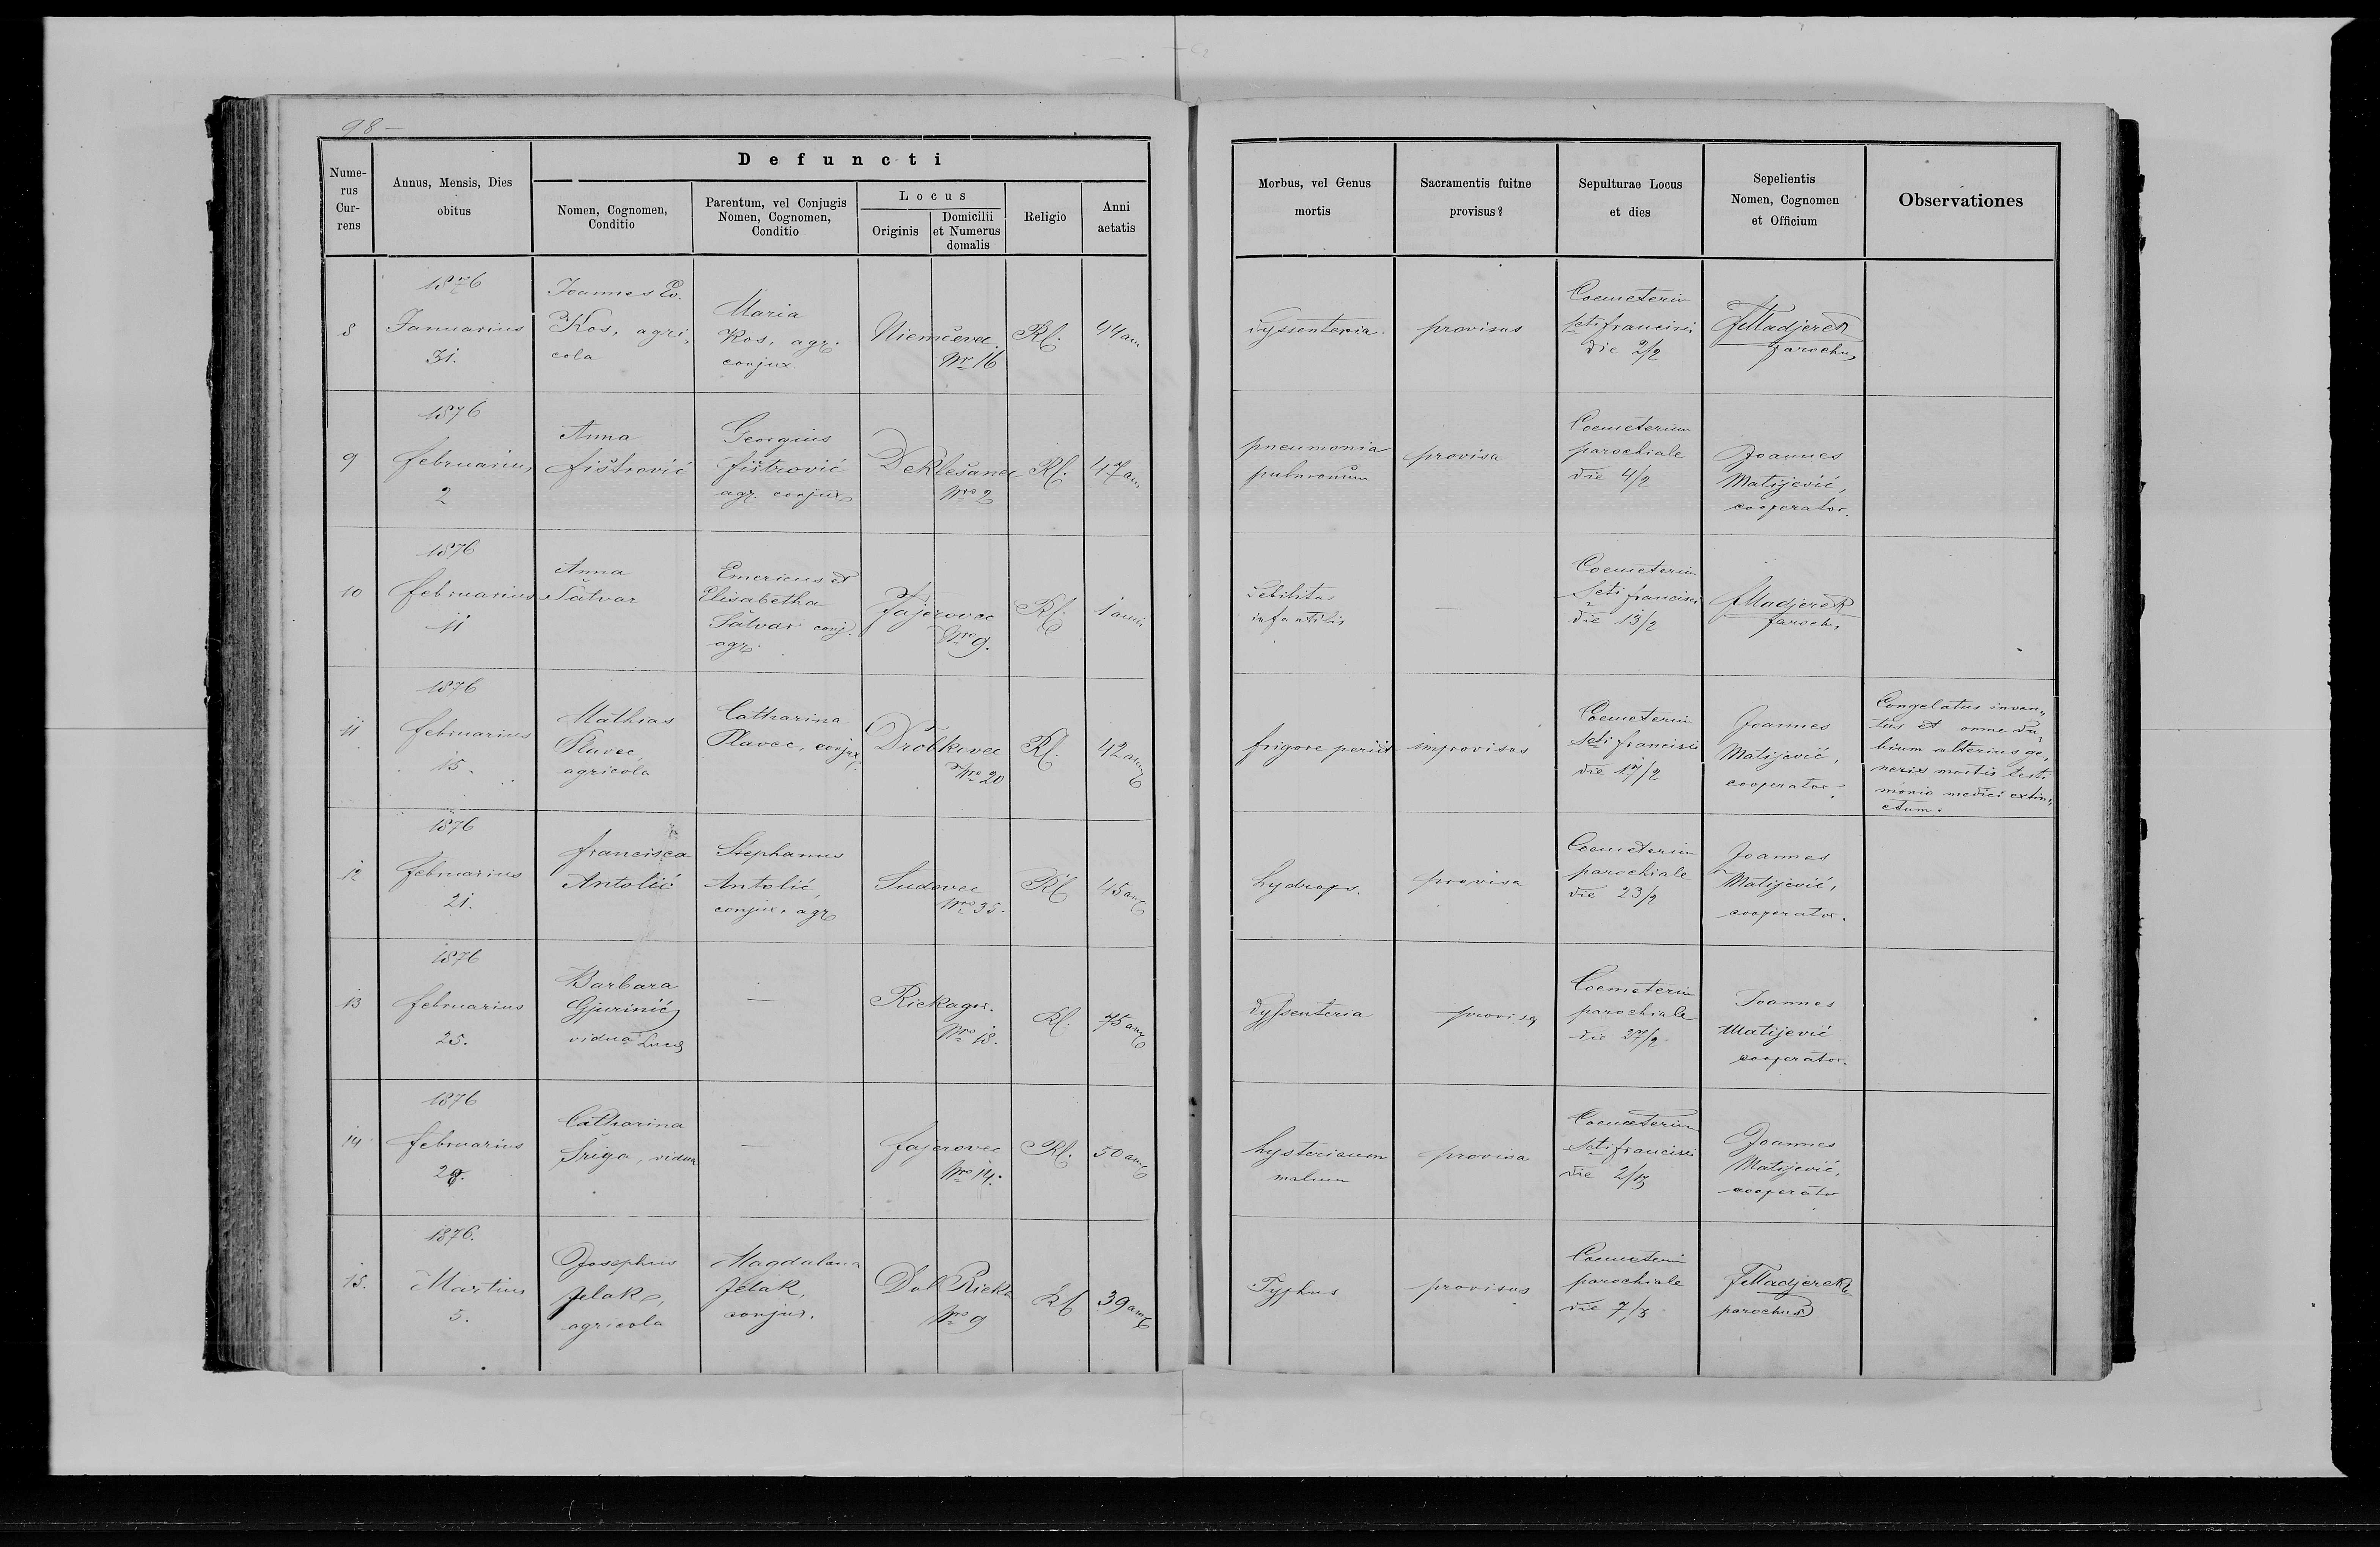 98 –
Defuncti
Nume-
rus
Cur-
rens
Annus, Mensis, Dies
obitus
Nomen, Cognomen,
Conditio
Parentum, vel Conjugis
Nomen, Cognomen,
Conditio
Locus
Originis
Domicilii
et Numerus
domalis
Religio
Anni
aetatis
Morbus, vel Genus
mortis
Sacramentis fuitne
provisus?
Sepulturae Locus
et dies
Sepelientis
Nomen, Cognomen
et Officium
Observationes
8
1876
Januarius
31.
Joannes
Kos, agri,
cola
Maria
Kos, agr.
conjux.
Niemčevec.
Nr 16
44
Dyssenteria.
provisus
Coemeterium
Scti francisci
die 2/2
Madjerek
parochus
9
1876
februarius
2
Anna
fištrović
Georgius
fištrović
agr. conjux
Deklešanec
Nro 2
47
pneumonia
pulmonum
provisa
Coemeterium
parochiale
die 4/2
Joannes
Matijević,
cooperator.
10
1876
februarius
11
Anna
Šatvar
Emericus et
Elisabetha
Šatvar conj.
agr.
fajerovec
Nro 9.
1
Debilitas
infantilis
—
Coemeterium
Scti francisci
die 13/2
Madjerek
paroch,
11
1876
februarius
15.
Mathias
Plavec,
agricola
Catharina
Plavec, conjux
Drobkovec
Nro 20
42
frigore periit
improvisus
Coemeterium
Scti francisci
die 17/2
Joannes
Matijević,
cooperator.
Congelatus inven„
tus et omne du„
bium alterius ge„
neris mortis testi
monio medici extin„
ctum.
12
1876
februarius
21.
francisca
Antolić
Stephanus
Antolić,
conjux, agr
Sudovec
Nro 35.
45
hydrops.
provisa
Coemeterium
parochiale
die 23/2
Joannes
Matijević,
cooperator.
13
1876
februarius
25.
Barbara
Gjurinić
vidua
—
Riekagor.
Nro 18.
75
dyssenteria
provisa
Coemeterium
parochiale
die 27/2
Joannes
Matijević
cooperator.
14
1876
februarius
Catharina
Šriga, vidua
—
fajerovec
Nro 14.
50
hystericum
malum
provisa
Coemeterium
Scti francisci
die 2/3
Joannes
Matijević,
cooperator
15.
1876.
Martius
5.
Josephus
Jelak,
agricola
Magdalena
Jelak,
conjux.
Dol Rieka
Nro 9
39
Typhus
provisus
Coemeterium
parochiale
die 7/3
Madjerek
parochus